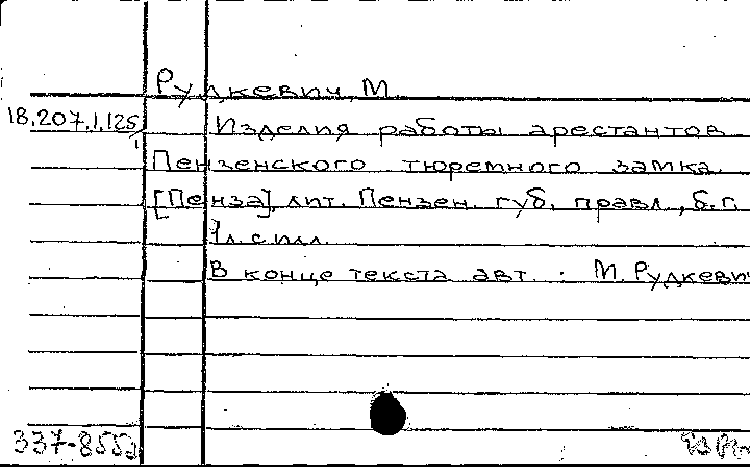 Рудкевич, М.
18.207.1.125/1 Изделия работы арестантов
Пензенского тюремного замка.
[Пенза], лит. Пензен. губ. правл., б.г.
1л. с илл.
В конце текста авт.: М. Рудкевич